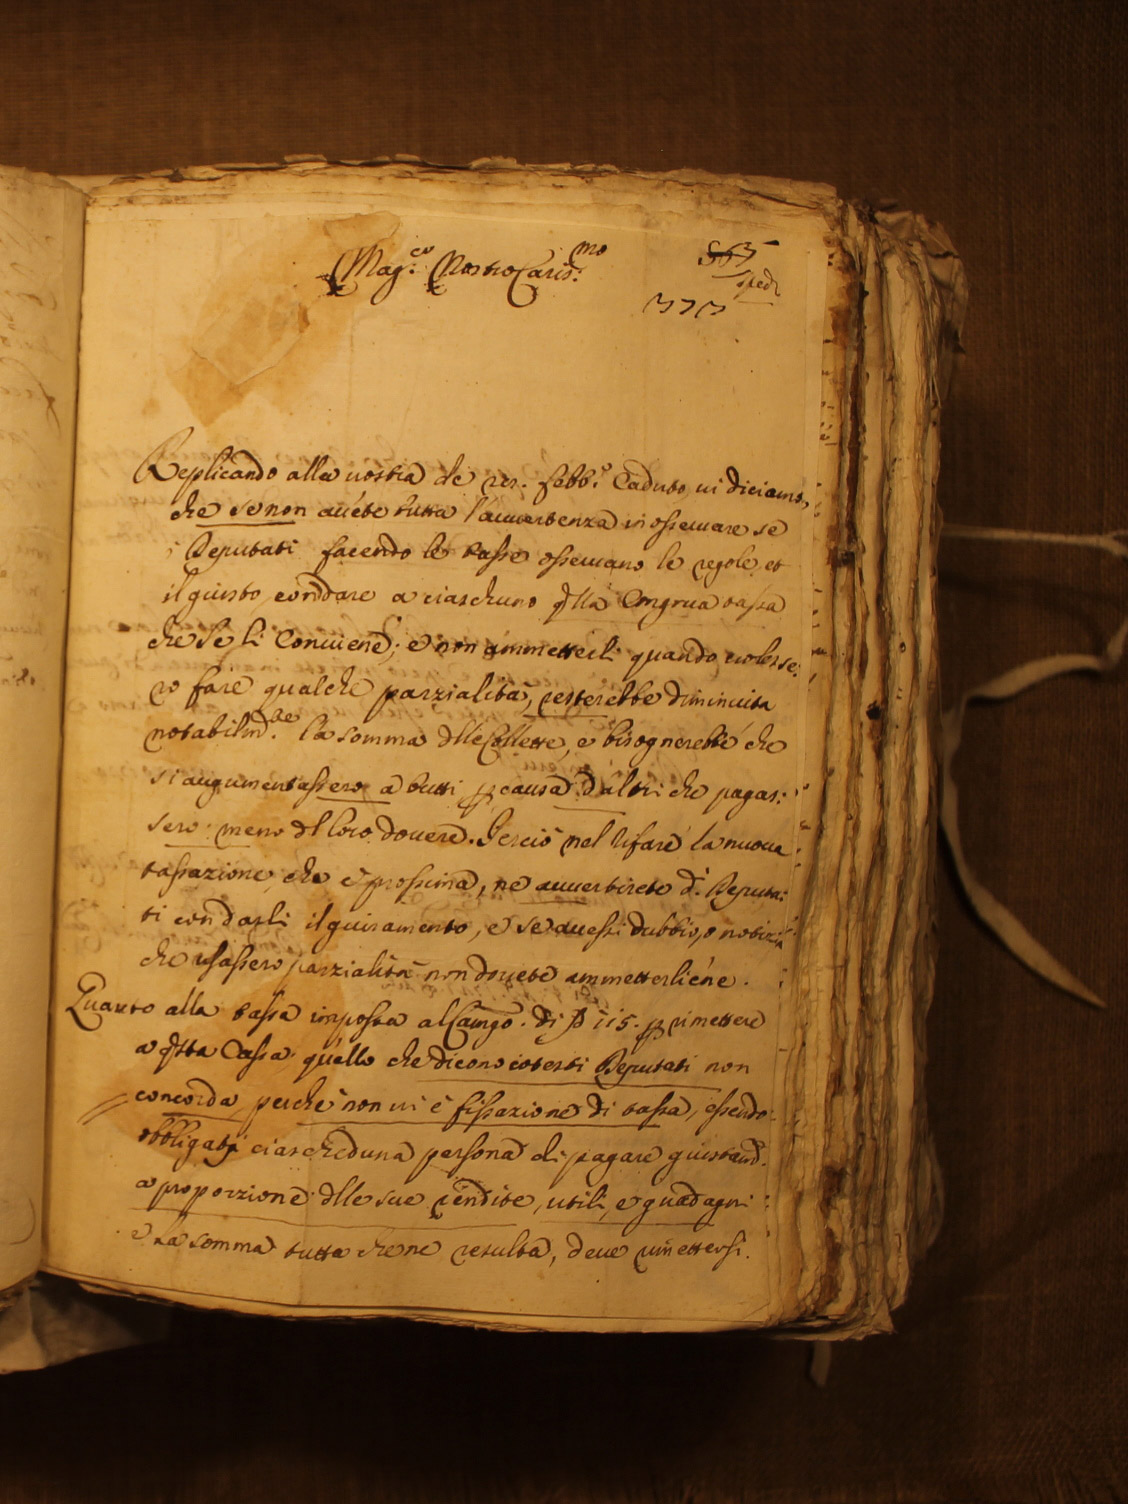 Mag.co Nostro Caris.mo
373
Replicando alla vostra de febb.o Caduto, vi diciamo,
che se non avete tutta l'avvertenza in osservare se
i Deputati facendo le tasse osservano le regole, et
il giusto, con dare a ciascheuno qlla Congrua tassa
che se li Conviene; e non ammetterli quando, volesse:
ro fare qualche parzialità, resterebbe diminuita
notabilm.te la somma dlle Collette, e bisognerebbe che
si augumentassero a tutti p causa d'altri che pagas:
sero meno dl loro dovere. Perciò nel rifare la nuova
tassazione, che è prossima, ne avvertirete d.i Deputa:
ti con darli il giuramento, e se avessi dubbio, o notizia
che usassero parzialità non dovete ammetterliene.
Quanto alla tassa imposta al Camgo. di 115. p rimettere
a qsta Cassa quello che dicono cotesti Deputati non
concorda perche non vi è fissazione di tassa, essendo
obbligati ciascheduna persona di pagare giustam.
a proporzione dlle sue rendite, utili, e guadagni
e la somma tutta che ne resulta, deve rimettersi.